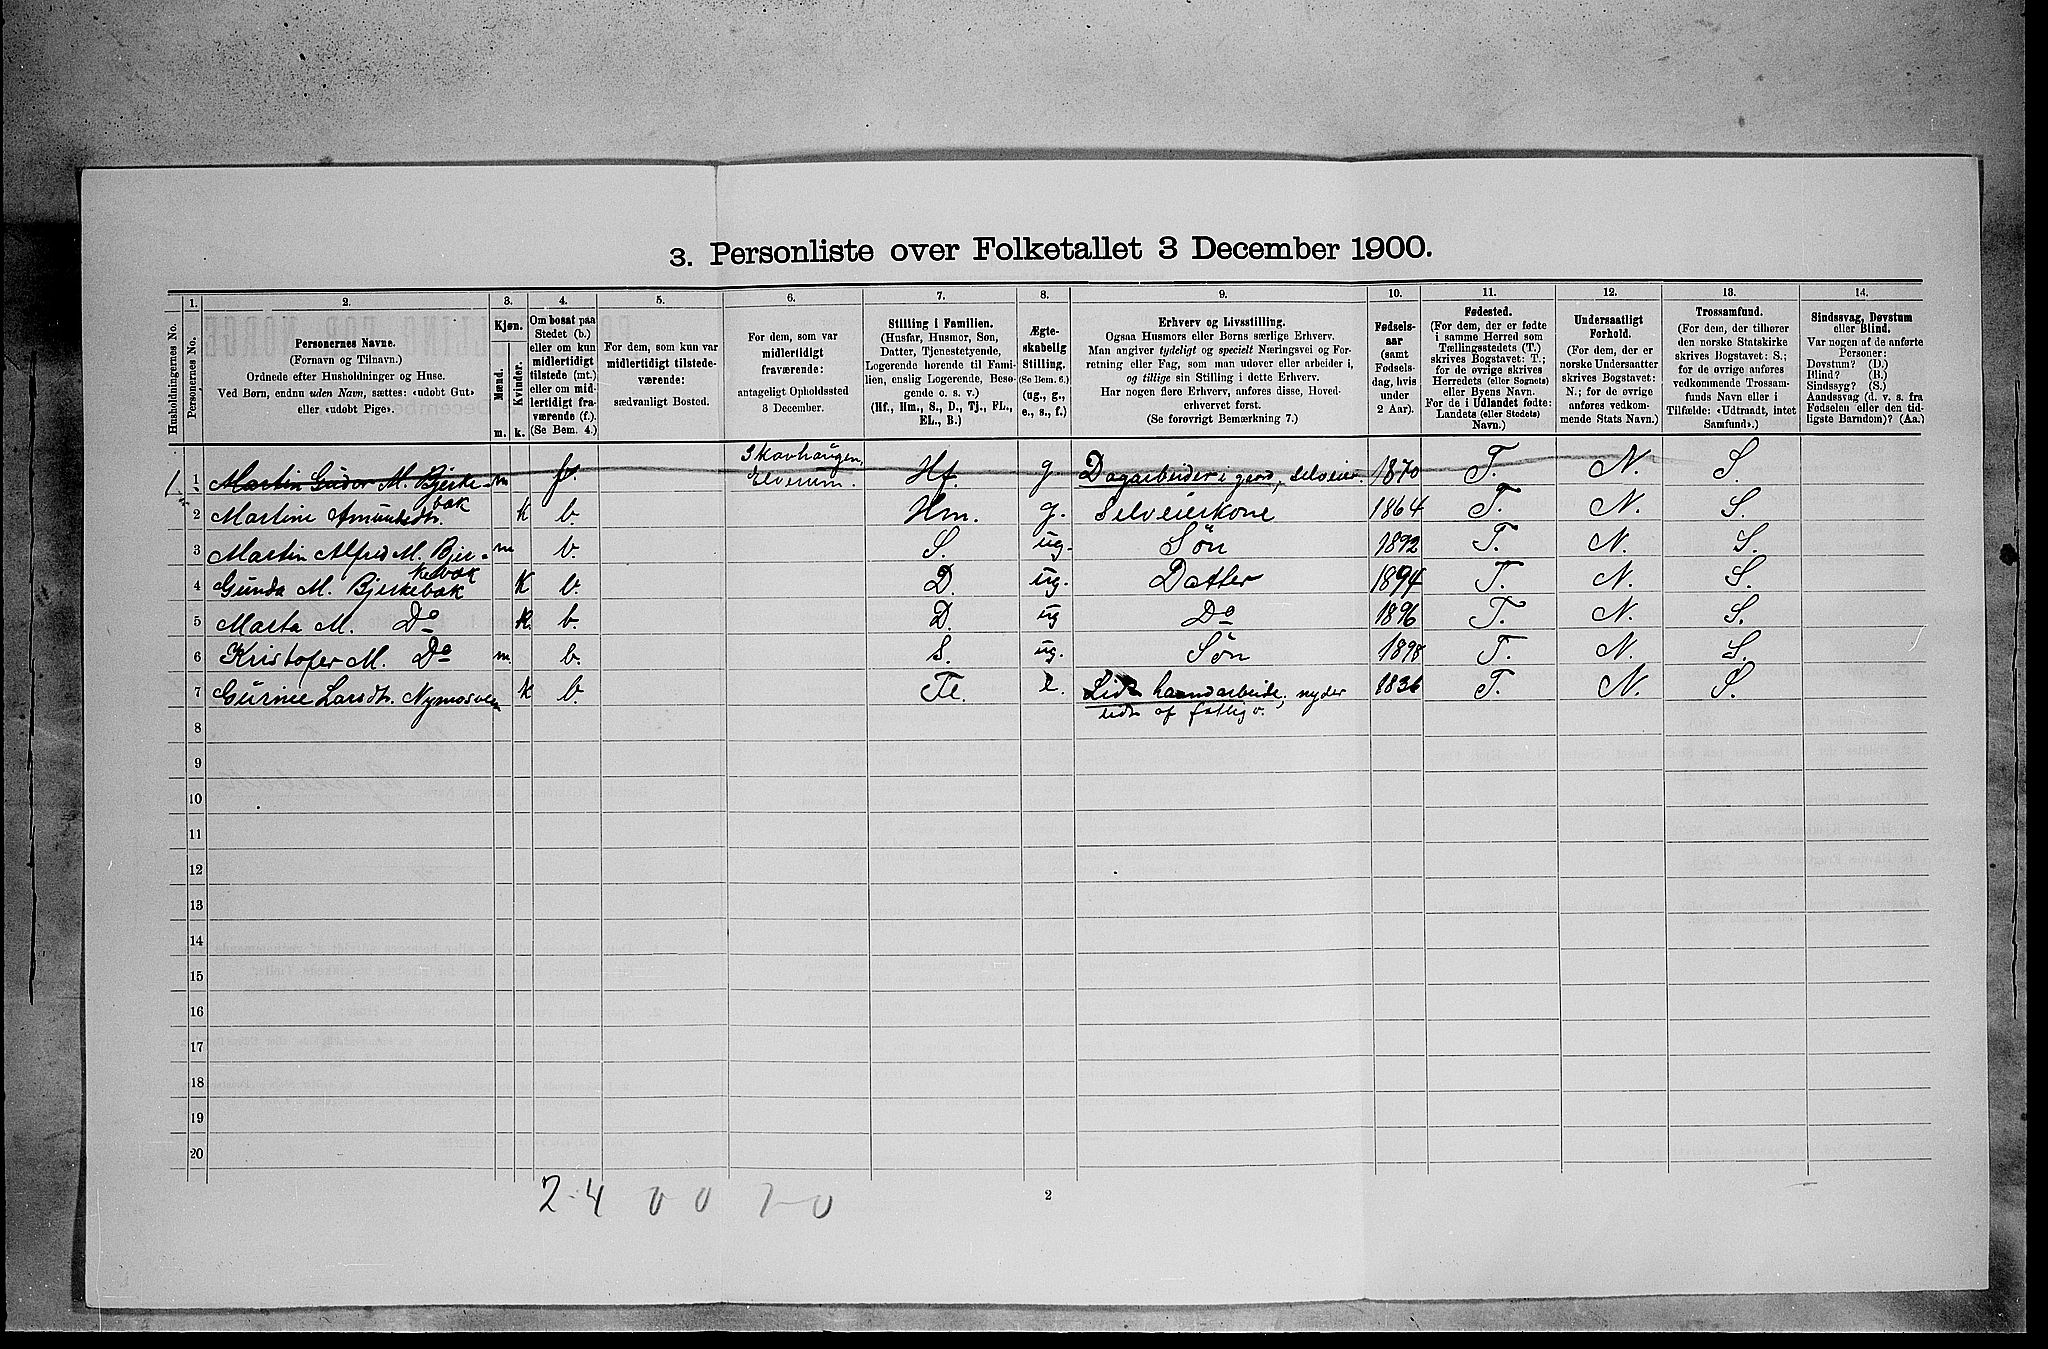 3. Personliste over Folketallet 3 December 1900.
Husholdningernes No.
1.
Personernes No.
2.
Personernes Navne.
(Fornavn og Tilnavn.)
Ordnede efter Husholdninger og Huse.
Ved Børn, endnu uden Navn, sættes: «udobt Gut»
eller «udobt Pige».
3.
Kjøn.
Mænd.
Kvinder.
m. k.
4.
Om bosat paa
Stedet (b.)
eller om kun
midlertidigt
tilstede (mt.)
eller om mid-
lertidigt fra-
værende (f.).
(Se Bem. 4.)
5.
For dem, som kun var
midlertidigt tilstede-
værende:
sædvanligt Bosted.
6.
For dem, som var
midlertidigt
fraværende:
antageligt Opholdssted
3 December.
7.
Stilling i Familien.
(Husfar, Husmor, Søn,
Datter, Tjenestetyende,
Logerende hørende til Fami-
lien, enslig Logerende, Besø-
gende o. s. v.)
(Hf., Hm., S., D., Tj., FL.,
EL., B.)
8.
Ægte-
skabelig
Stilling.
(Se Bem. 6.)
(ug., g.,
e., s., f.)
9.
Erhverv og Livsstilling.
Ogsaa Husmors eller Børns særlige Erhverv.
Man angiver tydeligt og specielt Næringsvei og For-
retning eller Fag, som man udover eller arbeider i,
og tillige sin Stilling i dette Erhverv.
Har nogen flere Erhverv, anføres disse, Hoved-
erhvervet først.
(Se forøvrigt Bemærkning 7.)
10.
Fødsels-
aar
(samt
Fødsels-
dag, hvis
under
2 Aar).
11.
Fødested.
(For dem, der er fødte
i samme Herred som
Tællingsstedets (T.)
skrives Bogstavet: T.;
for de øvrige skrives
Herredets (eller Sognets)
eller Byens Navn.
For de i Udlandet fødte:
Landets (eller Stedets)
Navn.)
12.
Undersaatligt
Forhold.
(For dem, der er
norske Undersaatter
skrives Bogstavet:
N.; for de øvrige
anføres vedkom-
mende Stats Navn.)
13.
Trossamfund.
(For dem, der tilhører
den norske Statskirke
skrives Bogstavet: S.;
for de øvrige anføres
vedkommende Trossam-
funds Navn eller i
Tilfælde: «Udtraadt, intet
Samfund».)
14.
Sindssvag, Døvstum
eller Blind.
Var nogen af de anførte
Personer:
Døvstum? (D.)
Blind? (B.)
Sindssyg? (S.)
Aandssvag (d. v. s. fra
Fødselen eller den tid-
ligste Barndom)? (Aa.)
1 Martin Gudor M. Bjerke-bak m f. Skavhaugen, Elverum. Hf. g Dagarbeider i gaard, selveier. 1870 T. N. S.
2 Martine Amundsdtr. k b. Hm. g. Selveierkone 1864 T. N. S.
3 Martin Alfred M. Bjer-kebak m b. S. ug. Søn 1892 T. N. S.
4 Gunda M. Bjerkebak k b. D. ug. Datter 1894 T. N. S.
5 Marta M. Do k. b. D. ug Do 1896 T. N. S.
6 Kristofer M. Do m. b. S. ug. Søn 1898 T. N. S.
7 Gurine Larsdtr. Nymosveen k b. Fl. e. Lidt haandarbeide, nyder lidt af fattigv. 1836 T. N. S.
8
9
10
11
12
13
14
15
16
17
18
19
20
2-4 0 0 2-0
2